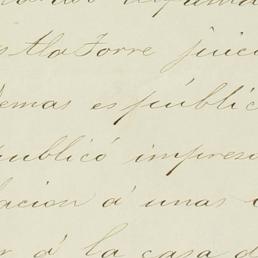 la Torre juic
demas es públic
publicó impreso
lacion á unas
r á la casa d